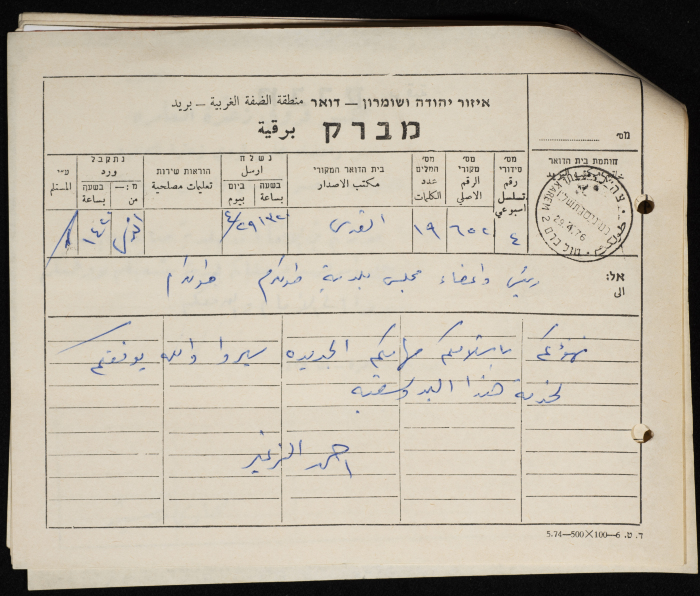 איזור יהודה ושומרון — דואר منطقة الضفة الغربية — بريد
מברק برقية
מס׳
חותמת בית הדואר
מס׳ סידורי رقم تسلسل اسبوعي
מס׳ מקורי الرقم الاصلي
מס׳ המלים عدد الكلمات
בית הדואר המקורי مكتب الاصدار
נשלח ارسل
בשעה بساعة
ביום بيوم
הוראות שירות تعليمات مصلحية
נתקבל ورد
מ:— من
בשעה بساعة
ע״י المستلم
٤ ٦٥٢ ١٩ القدس ١٣٢٠ ٤/٢٩ القدس ١٤٢٠
TULKAREM 29.4.76
אל: الى
رئيس واعضاء مجلس بلدية طولكرم طولكرم
نهنؤكم باستلامكم مهامكم الجديده سيروا والله يوفقكم
لخدمة هذا البلد وشعبه
احمد الزغير
ד. ט. 6—100×500—5.74